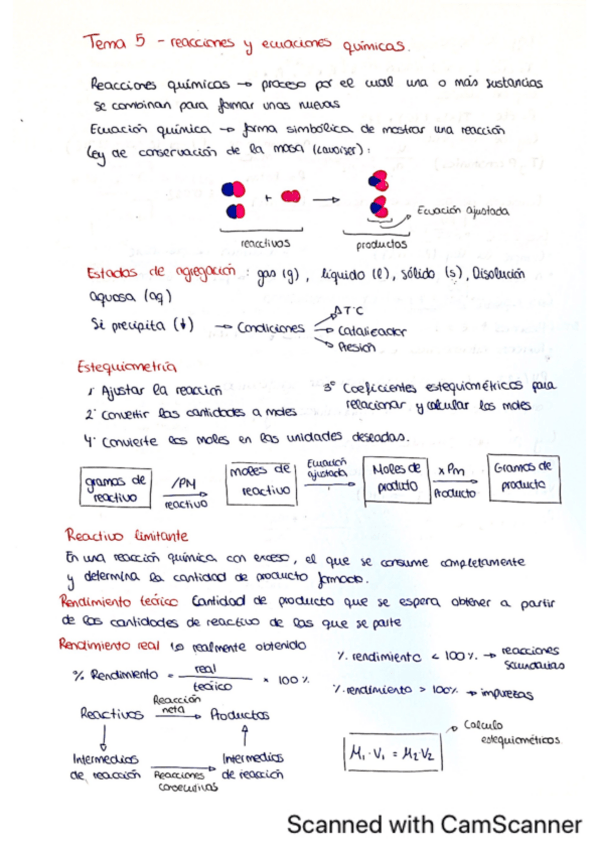 Tema 5 - reacciones y ecuaciones químicas.
Reacciones químicas → proceso por el cual una o más sustancias
se combinan para formar unas nuevas
Ecuación química → forma simbólica de mostrar una reacción
Ley de conservación de la masa (Lavoiser):
+ →
Ecuación ajustada
reactivos productos
Estados de agregación: gas (g), líquido (l), sólido (s), Disolución
aquosa (aq)
Si precipita (↓) → Condiciones
ΔTªC
Catalizador
Presión
Estequiometría
1º Ajustar la reacción
2º Convertir las cantidades a moles
3º Coeficientes estequiométricos para
relacionar y calcular los moles
4º Convierte los moles en las unidades deseadas.
gramos de reactivo
/PM
reactivo
moles de reactivo
Ecuación ajustada
Moles de producto
x Pm
Producto
Gramos de producto
Reactivo limitante
En una reacción química con exceso, el que se consume completamente
y determina la cantidad de producto formado.
Rendimiento teórico Cantidad de producto que se espera obtener a partir
de las cantidades de reactivo de las que se parte
Rendimiento real lo realmente obtenido
% Rendimiento = real / teórico × 100 %
% rendimiento < 100 % → reacciones
secundarias
% rendimiento > 100% → impurezas
Reactivos Reacción neta Productos
Intermedios
de reacción
Reacciones
consecutivas
Intermedios
de reacción
Calculo
estequiométricos
M₁·V₁ = M₂·V₂
Scanned with CamScanner